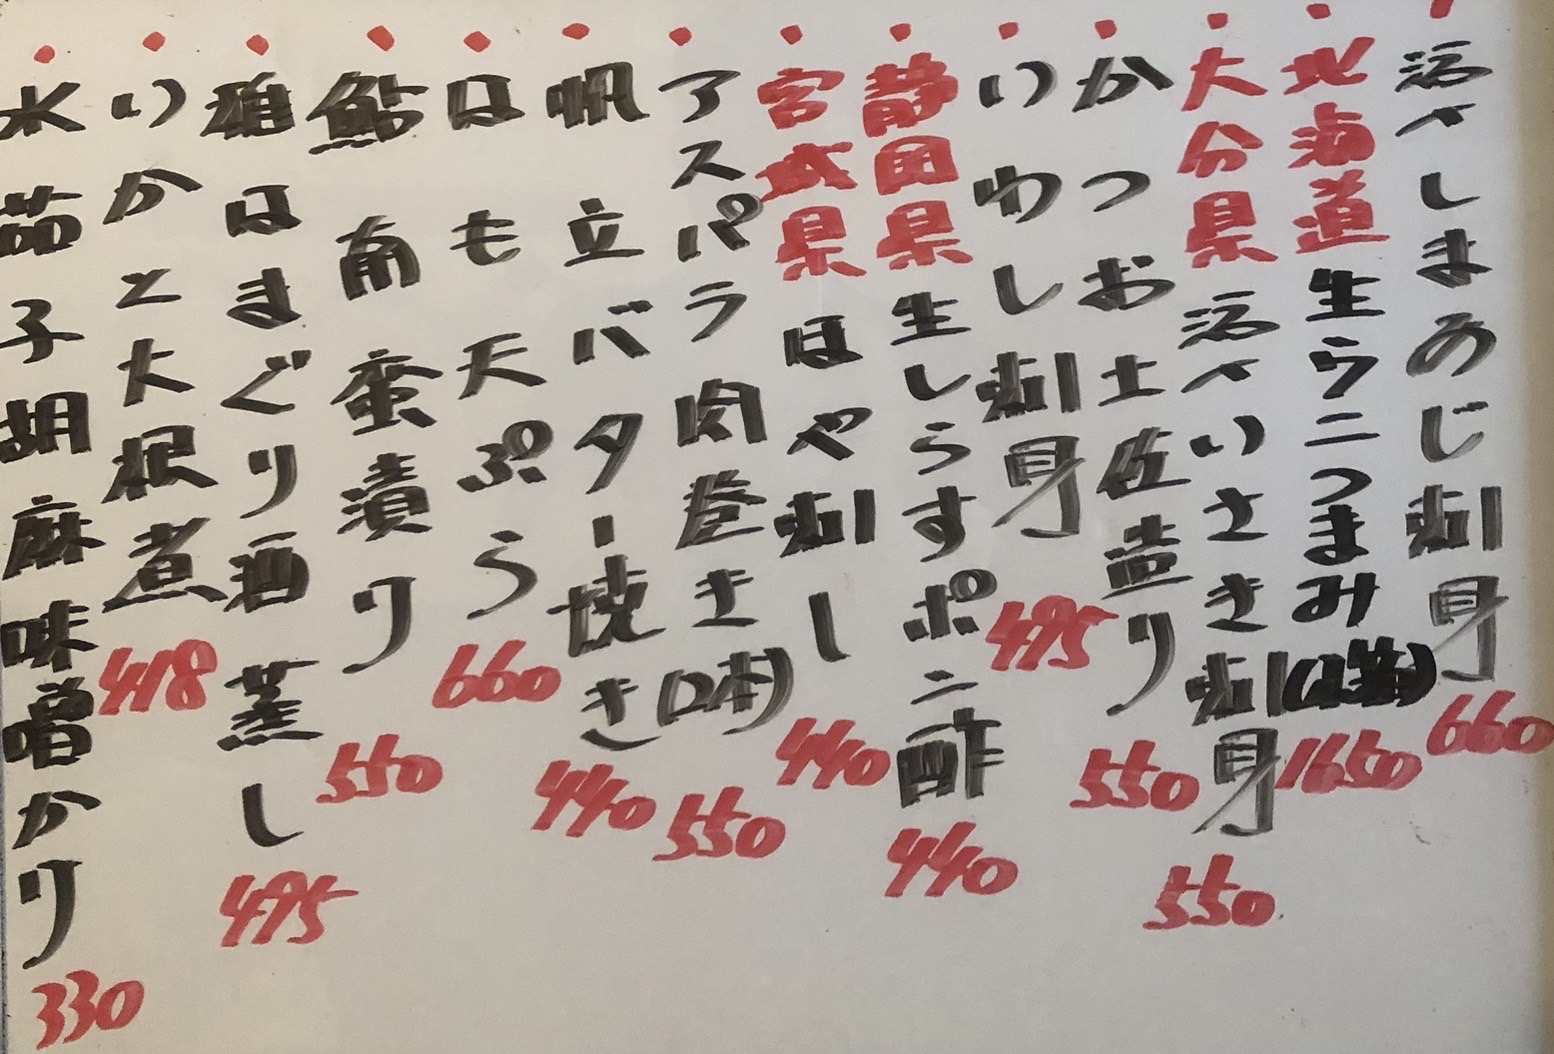 活〆しまあじ刺身 660
北海道 生ウニつまみ 1650
大分県 活〆いさき刺身 550
かつお土佐造り 550
いわし刺身 495
静岡県 生しらすポン酢 440
宮城県 ほや刺し 440
アスパラ肉巻き(2本) 550
帆立バター焼き 440
はも天ぷら 660
鮎南蛮漬り 550
はまぐり酒蒸し 495
いかと大根煮 418
水茄子胡麻味噌かり 330